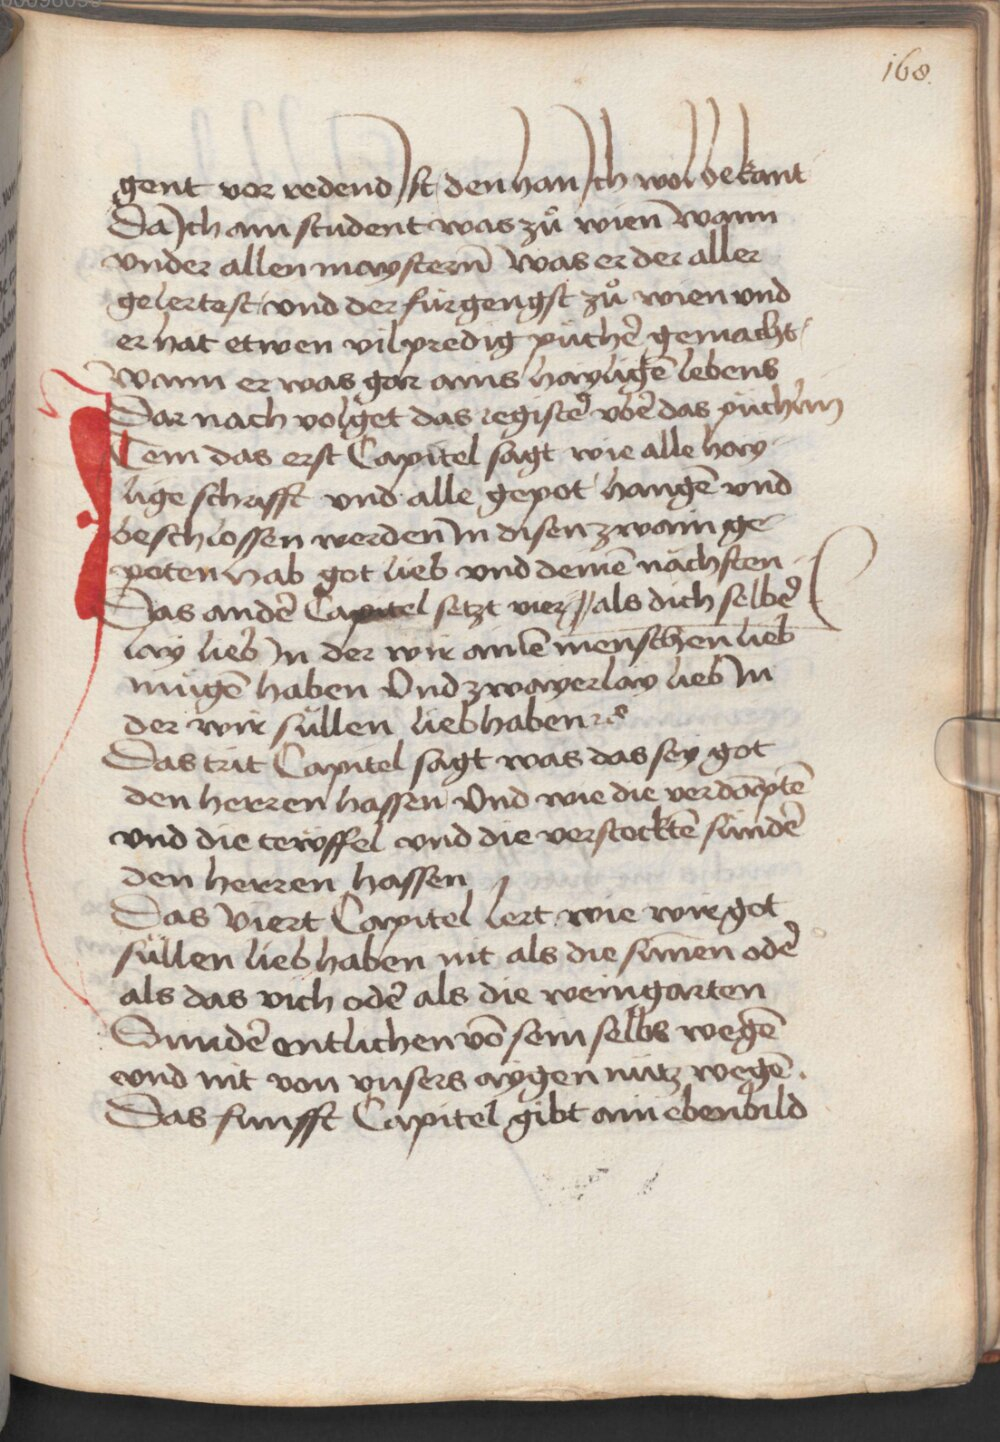 168.
gent vor redend Jst den han Jch wol bekant
Da Jch ain student was zů wien wann
vnder allen maystern̄ was er der aller
gelertest vnd der fürgengst zů wien vnd
er hat etwen vil predig püchē gemacht
wann er was gar ains hayligē lebens
Dar nach volget das registē vbē das püchlin
Jtem das erst Capitel sagt wie alle hay-
lige schrifft vnd alle gepot hangē vnd
beschlossen werden Jn disen zwain ge-
poten hab got lieb vnd deinē nächsten
Das andē Capitel setzt vier // als dich selbē
lay lieb Jn der wir ainē menschen lieb
mügē haben Vnd zwayerlay lieb Jn
der wir süllen lieb haben
Das trit Capitel sagt was das sey got
den herren hassen Vnd wie die verdāptē
vnd die tewffel vnd die verstocktē sündē
den herren hassen
Das Viert Capitel lert wie wir got
süllen lieb haben nit als die sinnen odē
als das vich odē als die weingarten
Sundē entlichen vō sein selbs wegē
vnd nit von vnsers aygen nütz wegē.
Das funfft Capitel gibt ain ebenbild